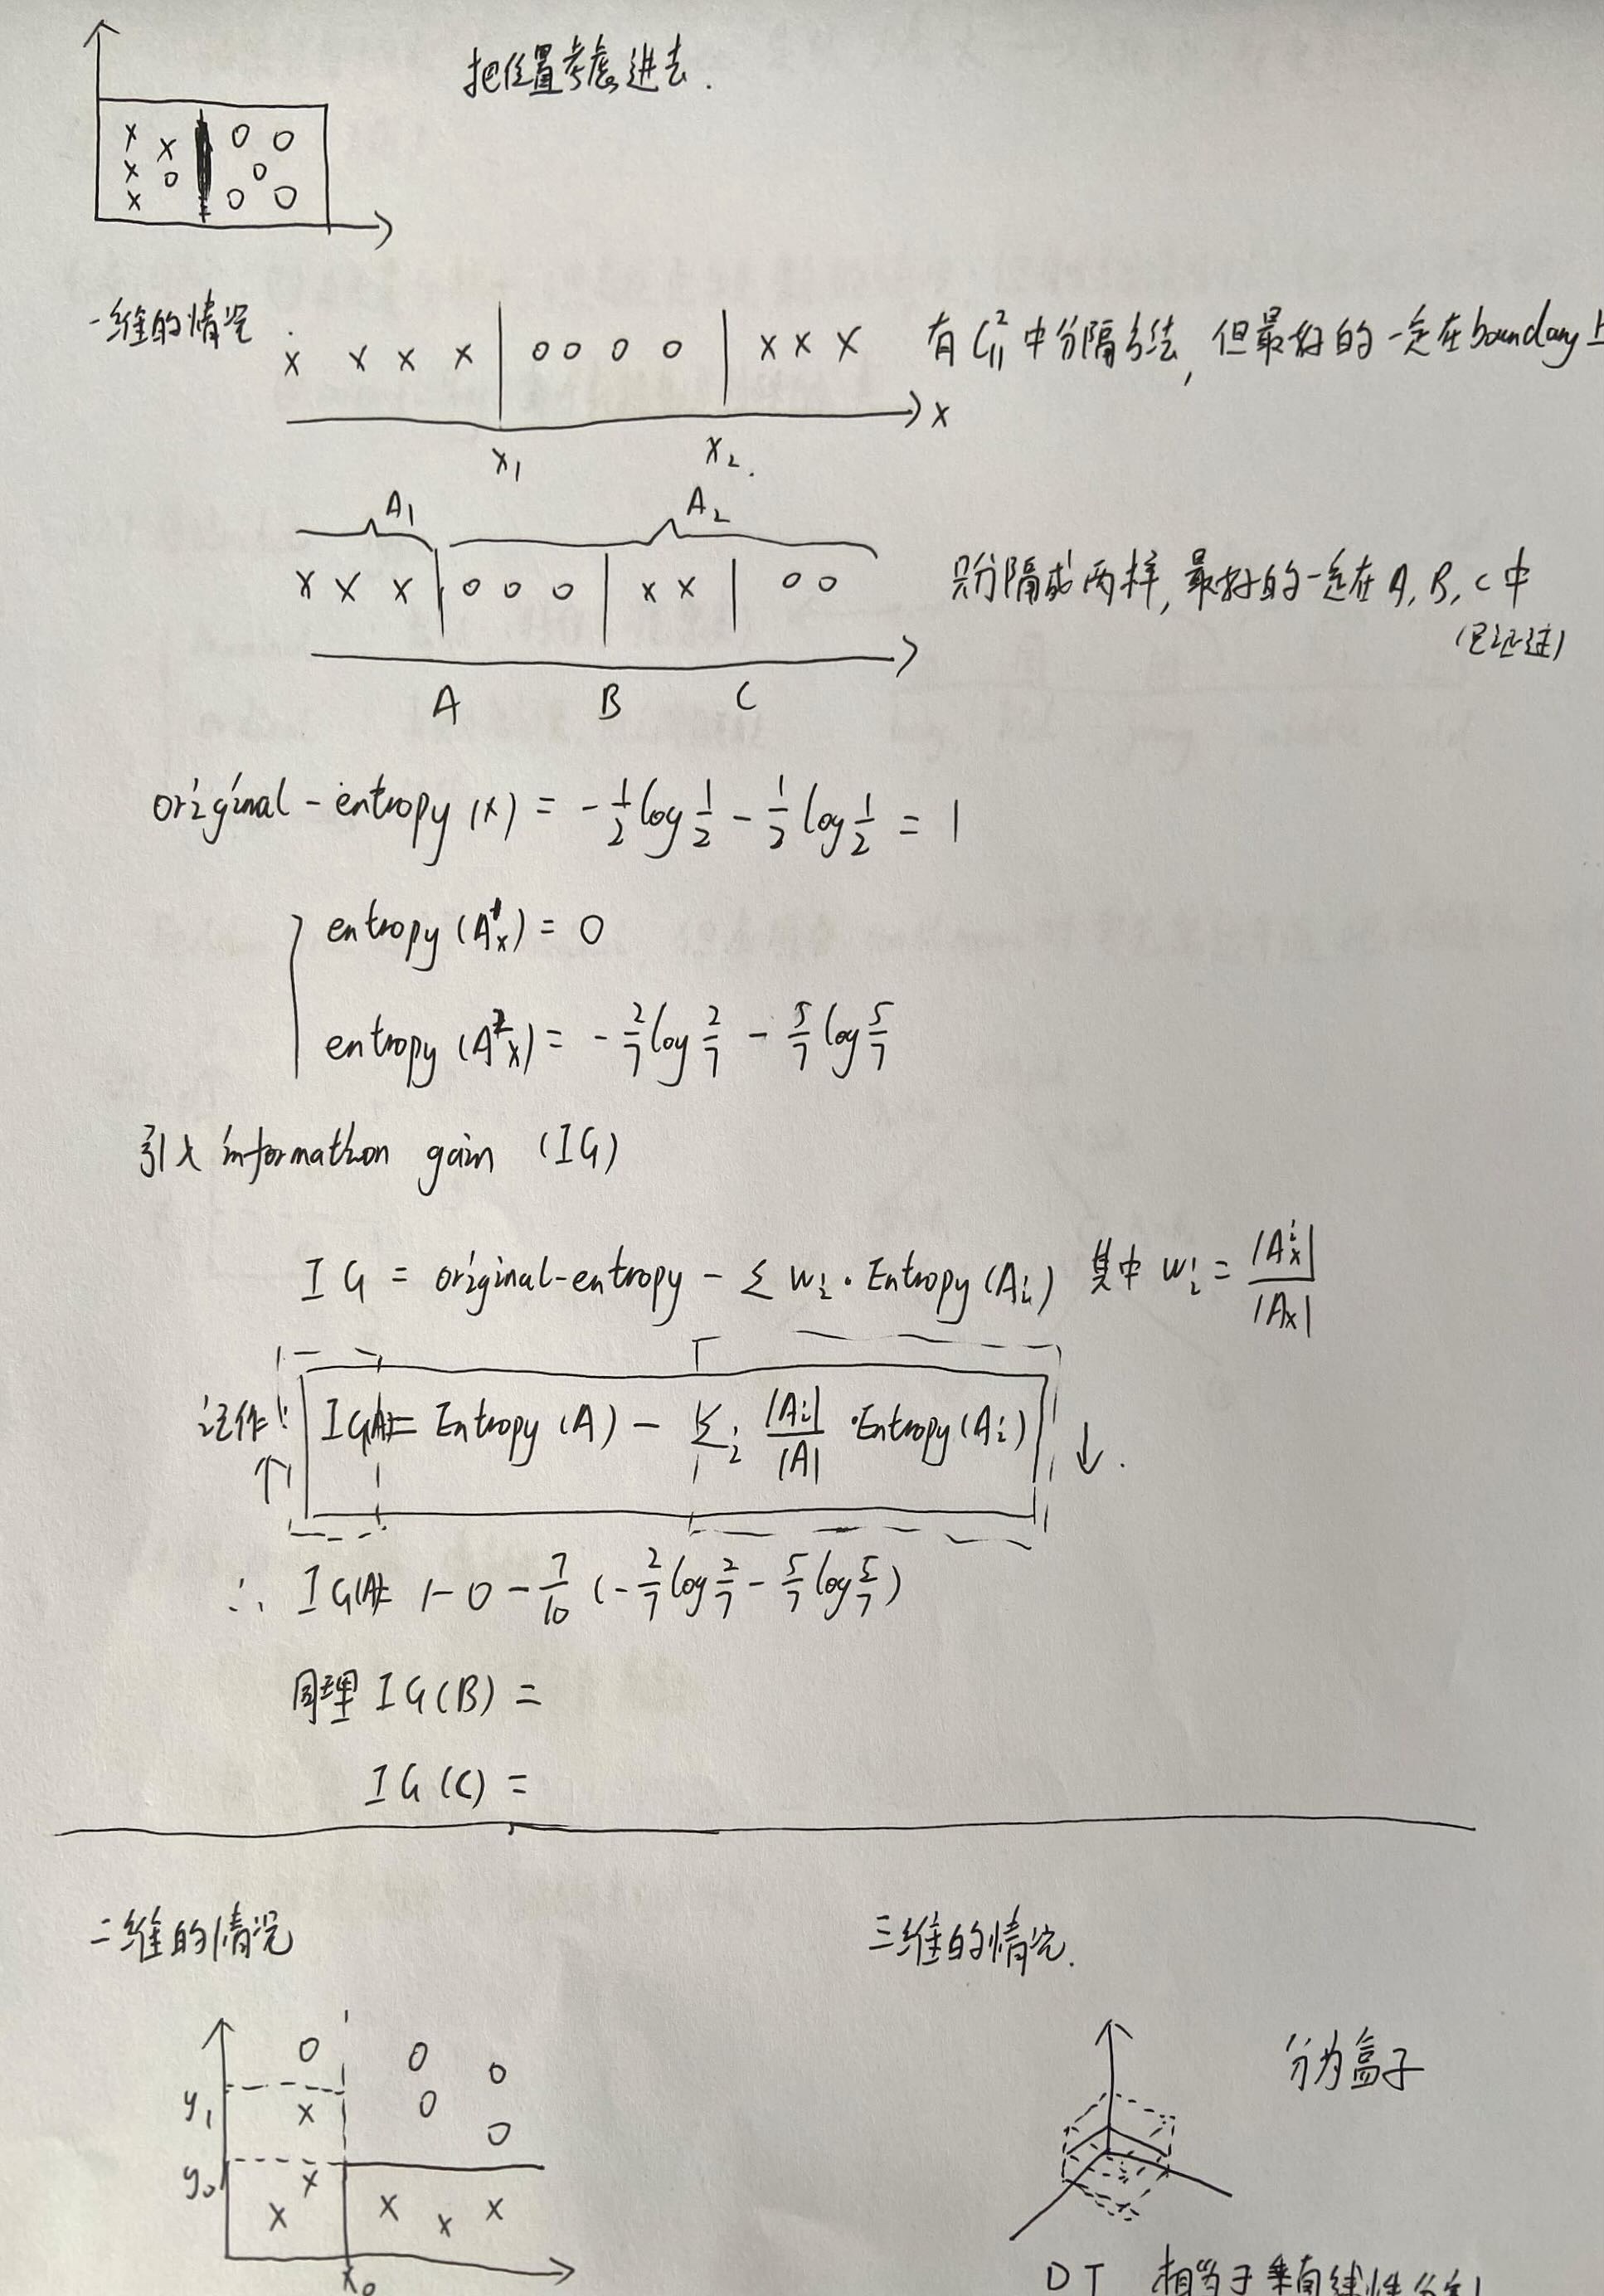 把位置考虑进去.
一维的情况
x x x x o o o o x x x
有 C₁₁² 中分隔方法, 但最好的一定在boundary上
x
x₁ x₂.
A₁ A₂
x x x o o o x x o o
只分隔成两样, 最好的一定在 A, B, C 中
(已证过)
A B C
original-entropy (x) = -1/2 log 1/2 - 1/2 log 1/2 = 1
entropy (A¹ₓ) = 0
entropy (A²ₓ) = -2/7 log 2/7 - 5/7 log 5/7
引入 information gain (IG)
IG = original-entropy - Σ wᵢ · Entropy(Aᵢ) 其中 wᵢ = |Aⁱₓ| / |Aₓ|
记作: IG(A) = Entropy (A) - Σᵢ |Aᵢ|/|A| · Entropy(Aᵢ)
↑ ↓.
∴ IG(A) = 1 - 0 - 7/10 (-2/7 log 2/7 - 5/7 log 5/7)
同理 IG(B) =
IG(C) =
二维的情况
三维的情况.
y₁
y₀
x₀
分为盒子
DT 相当于垂直线性分割